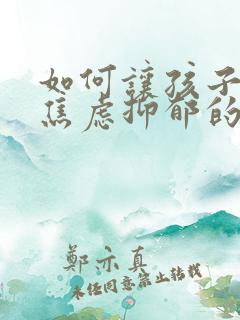 如何讓孩子
焦虑抑郁的
鄭亦真
未经同意禁止转载